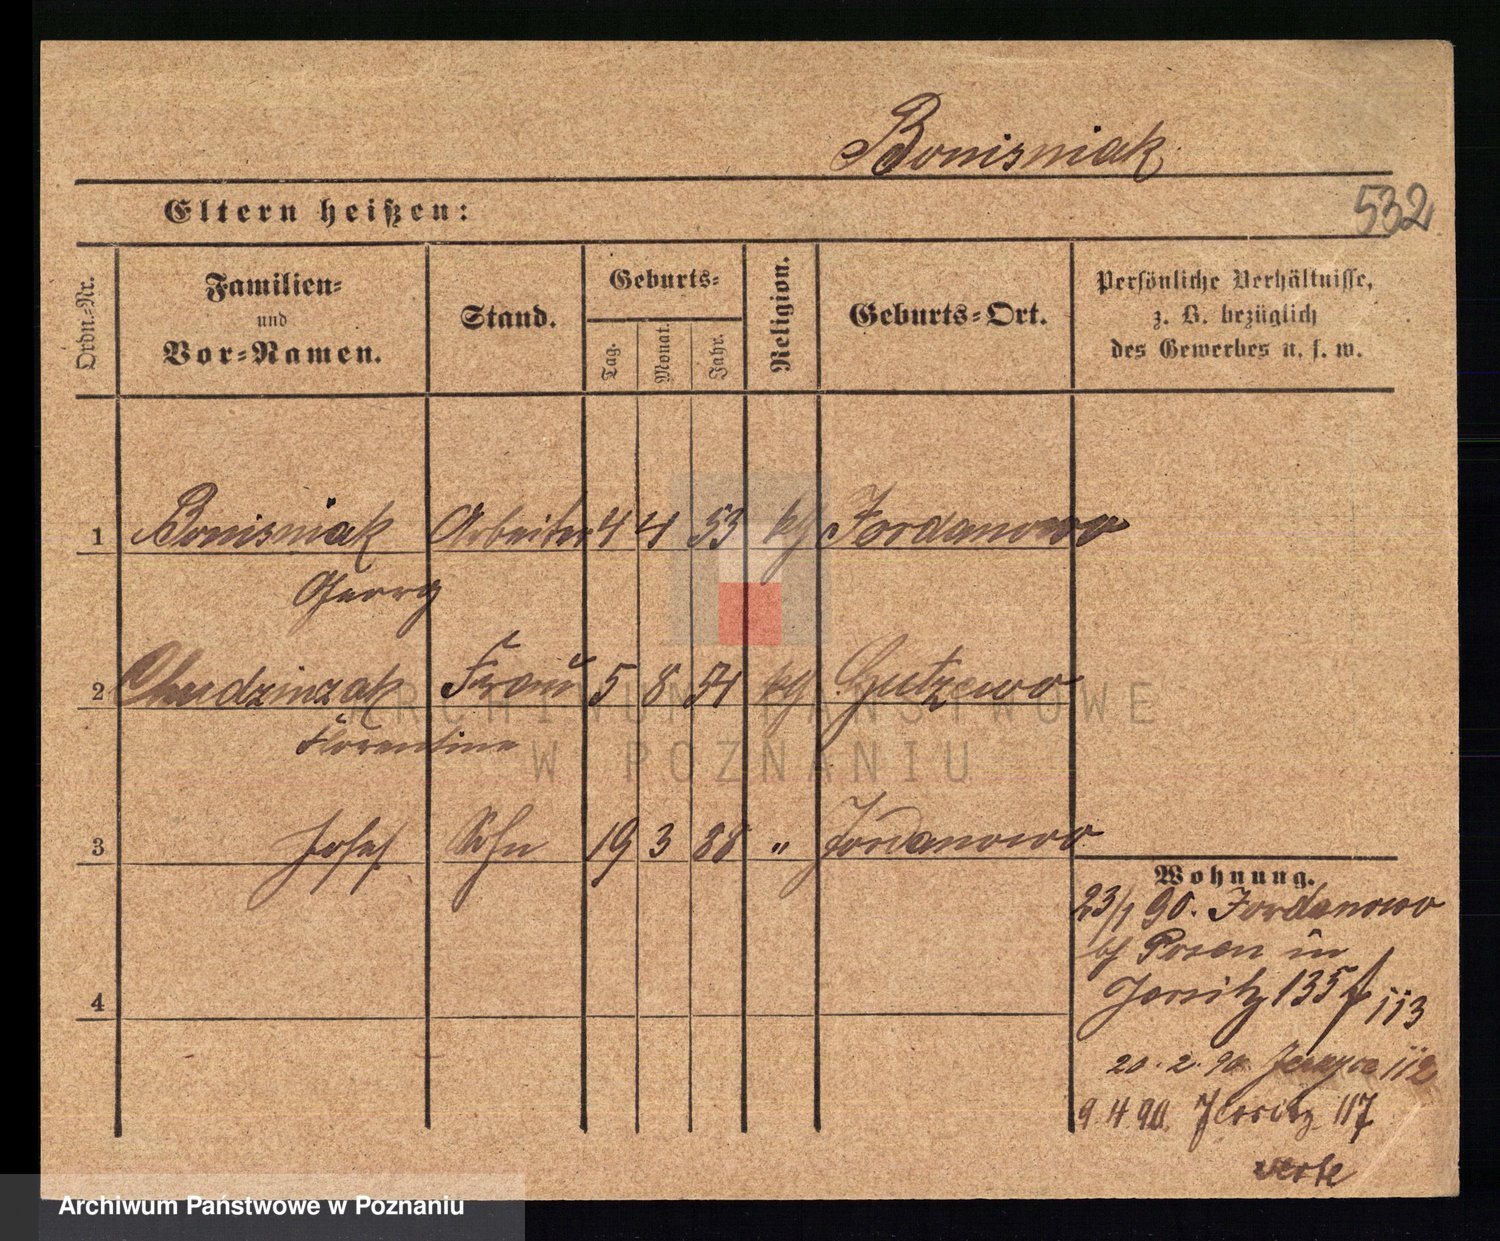 Bonisniak
532
Eltern heißen:
Ordn.-Nr.
Familien-
und
Vor-Namen.
Stand.
Geburts-
Tag.
Monat.
Jahr.
Religion.
Geburts-Ort.
Persönliche Verhältnisse,
z. B. bezüglich
des Gewerbes u. s. w.
1 Bonisniak Arbeiter 4 4 53 kg Jordanowo
Georg
2 Chudzinzak Frau 5 8 54 kg Gutzewo
Florentine
3 Josef Sohn 19 3 88 " Jordanowo
4
Wohnung.
23/1 90. Jordanowo
bf Posen in
Jersitz 135 113
20. 2. 90 112
9. 4 90. Jersitz 117
verte
ARCHIWUM PAŃSTWOWE
W POZNANIU
Archiwum Państwowe w Poznaniu